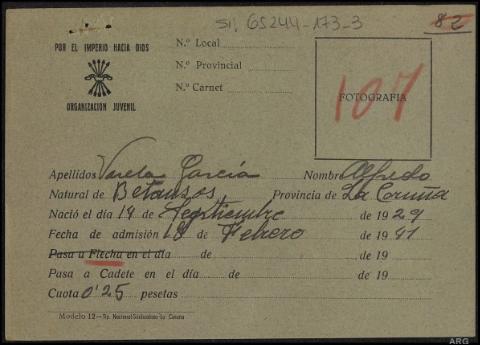 SIi 65244-173-3
82
POR EL IMPERIO HACIA DIOS
ORGANIZACION JUVENIL
N.º Local
N.º Provincial
N.º Carnet
FOTOGRAFIA
107
Apellidos Varela García Nombre Alfredo
Natural de Betanzos, Provincia de La Coruña
Nació el día 19 de Septiembre de 1929
Fecha de admisión 18 de Febrero de 1941
Pasa a Flecha en el día de de 19
Pasa a Cadete en el día de de 19
Cuota 0'25 pesetas
Modelo 12—Tip. Nacional-Sindicalista La Coruña
ARG